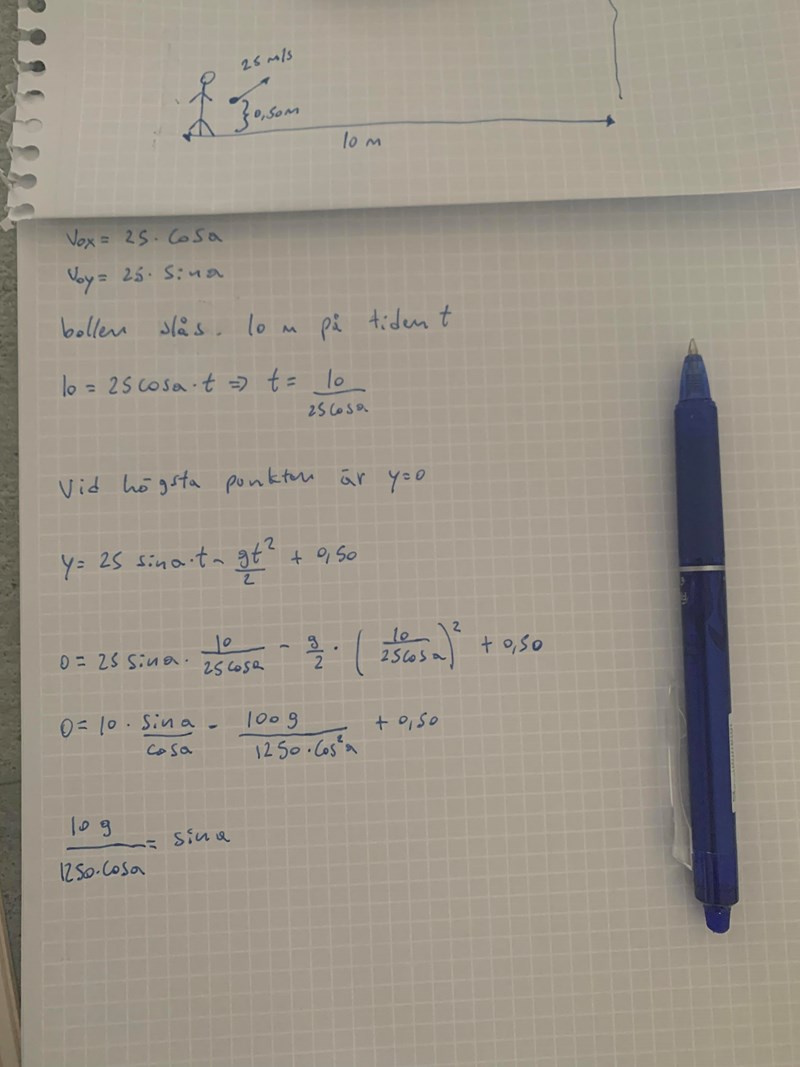 25 m/s
0,50m
10 m
Vox = 25 · cosa
Voy = 25 · sina
bollen slås. 10 m på tiden t
10 = 25cosa · t => t = 10/25cosa
Vid högsta punkten är y=0
y = 25 sina · t - gt²/2 + 0,50
0 = 25 sina · 10/25cosa - g/2 · (10/25cosa)² + 0,50
0 = 10 · sina/cosa - 100g/1250·cos²a + 0,50
10g/1250·cosa = sina